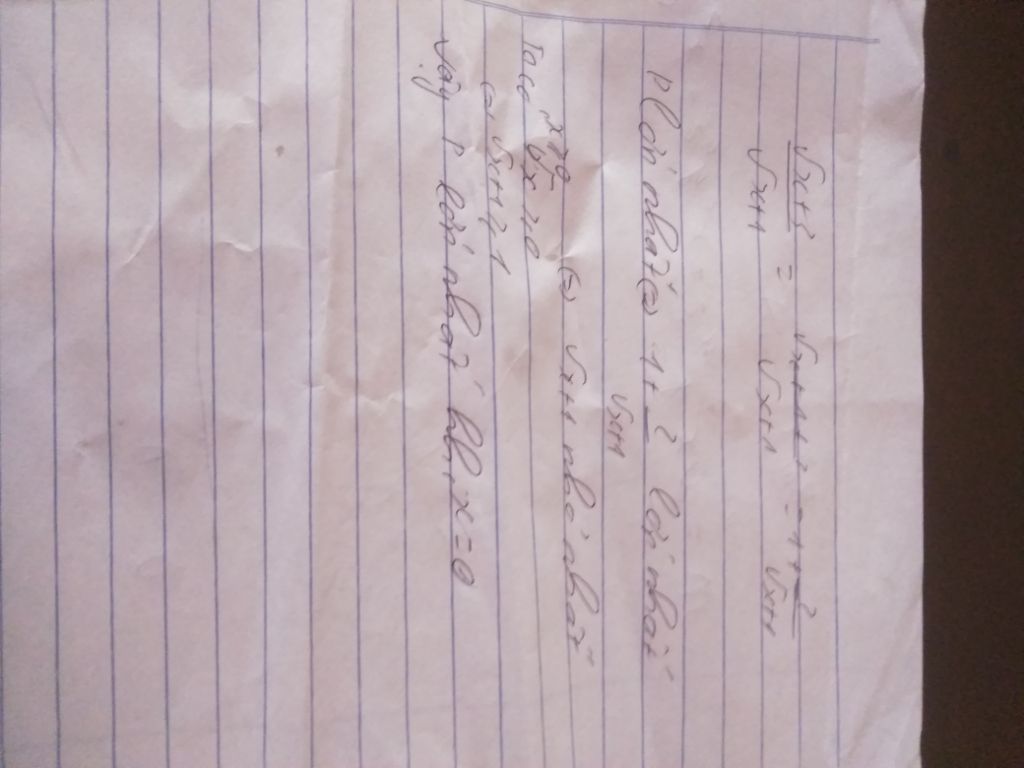 √x+3 / √x+1 = √x+1+2 / √x+1 = 1 + 2 / √x+1
P lớn nhất (=) 1 + 2 / √x+1 lớn nhất
(=) √x+1 nhỏ nhất
Ta có x≥0
√x ≥0
=> √x+1 ≥ 1
Vậy P lớn nhất khi x=0